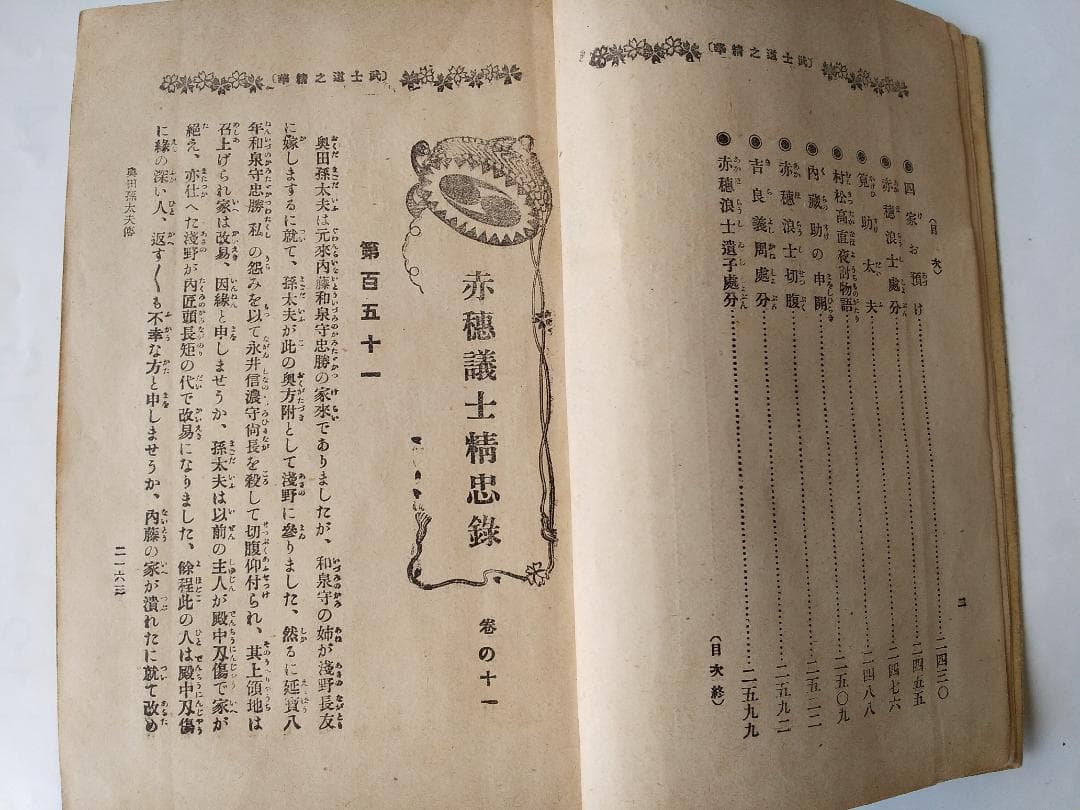 〔武士道之精華〕
（目次）
◉四家お預け……二四三〇
◉赤穂浪士處分……二四五五
◉筧助太夫……二四七六
◉村松高直夜討物語……二四八八
◉內藏助の申開……二五〇九
◉赤穂浪士切腹……二五二二
◉吉良義周處分……二五九二
◉赤穂浪士遺子處分……二五九九
（目次終）
二
〔武士道之精華〕
赤穂議士精忠錄 卷の十一
第百五十一
奥田孫太夫は元來內藤和泉守忠勝の家來でありましたが、和泉守の姉が淺野長友
に嫁しまするに就て、孫太夫が此の奥方附として淺野に參りました、然るに延寶八
年和泉守忠勝私の怨みを以て永井信濃守尙長を殺して切腹仰付られ、其上領地は
召上げられ家は改易、因緣と申しませうか、孫太夫は以前の主人が殿中刄傷で家が
絶え、亦仕へた淺野が內匠頭長矩の代で改易になりました、餘程此の人は殿中刄傷
に緣の深い人、返す〲も不幸な方と申しませうか、內藤の家が潰れたに就て改め
奥田孫太夫傳
二一六三